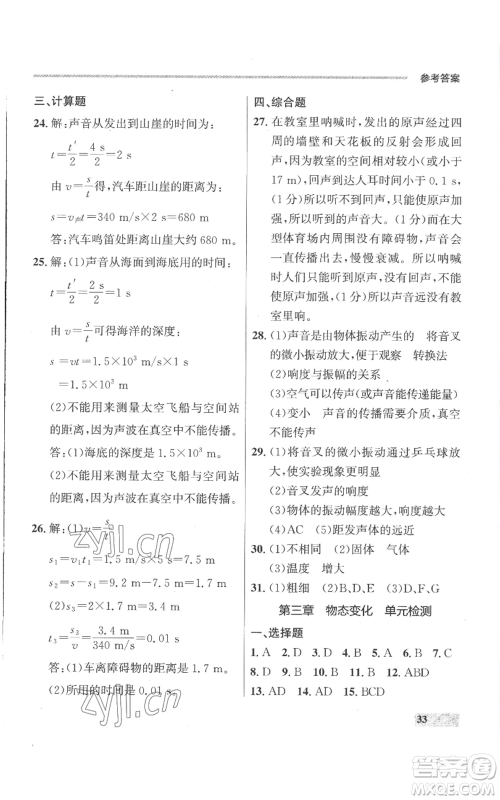 参考答案
三、计算题
24. 解：声音从发出到山崖的时间为：
t=t′/2=4 s/2=2 s
由 v=s/t 得，汽车距山崖的距离为：
s=v声t=340 m/s×2 s=680 m
答：汽车鸣笛处距山崖大约 680 m。
25. 解：(1)声音从海面到海底用的时间：
t=t′/2=2 s/2=1 s
由 v=s/t 可得海洋的深度：
s=vt=1.5×10³ m/s×1 s
=1.5×10³ m
(2)不能用来测量太空飞船与空间站
的距离。
答：(1)海底的深度是 1.5×10³ m。
(2)不能用来测量太空飞船与空间站
的距离，因为声波在真空中不能
传播。
26. 解：(1)v=s/t
s₁=v₁t₁=1.5 m/s×5 s=7.5 m
s=s−s₁=9.2 m−7.5 m=1.7 m
(2)s₃=2s=2×1.7 m=3.4 m
t₃=s₃/v=3.4 m/340 m/s=0.01 s
答：(1)车离障碍物的距离是 1.7 m。
(2)所用的时间是 0.01 s。
四、综合题
27. 在教室里呐喊时的原声经过四
周的墙壁和天花板的反射会形成回
声。因为教室的空间相对较小(或小于
17 m)，回声到达人耳时间小于 0.1 s，
(1 分)回声与原声混在一起使原声加
强。所以听到的声音大。(1 分)而在大
型体育场内周围没有障碍物，声音会
一直传播出去，慢慢衰减。所以，呐喊
时就没有回声加强原声，声音远没有教
室里响。
28. (1)声音是由物体振动产生的 将音叉
的微小振动放大，便于观察 转换法
(2)响度与振幅的关系
(3)空气可以传声(或声音能传递能量)
(4)变小 声音的传播需要介质，真空
不能传声
29. (1)将音叉的微小振动通过乒乓球放
大，使实验现象更明显
(2)音叉发声的响度
(3)物体振动幅度越大，声音响度越大
(4)AC (5)距发声体的远近
30. (1)不相同 (2)固体 气体
(3)温度 增大
31. (1)粗细 (2)B、D、E (3)B、D、F
第三章 物态变化 单元检测
一、选择题
1. A 2. D 3. D 4. D 5. A 6. B 7. C
8. D 9. C 10. D 11. B 12. ABD
13. AD 14. AD 15. BCD
33
zyjl.cn
zyjl.cn